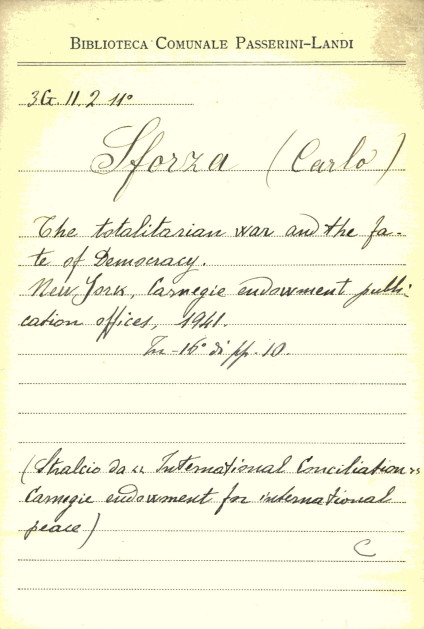 BIBLIOTECA COMUNALE PASSERINI-LANDI
3G. 11. 2 11°
Sforza (Carlo)
The totalitarian war and the fa-
te of Democracy.
New York, Carnegie endowment publi-
cation offices, 1941.
In-16° di pp. 10.
(Stralcio da «International Conciliation»
Carnegie endowment for international
peace)
C